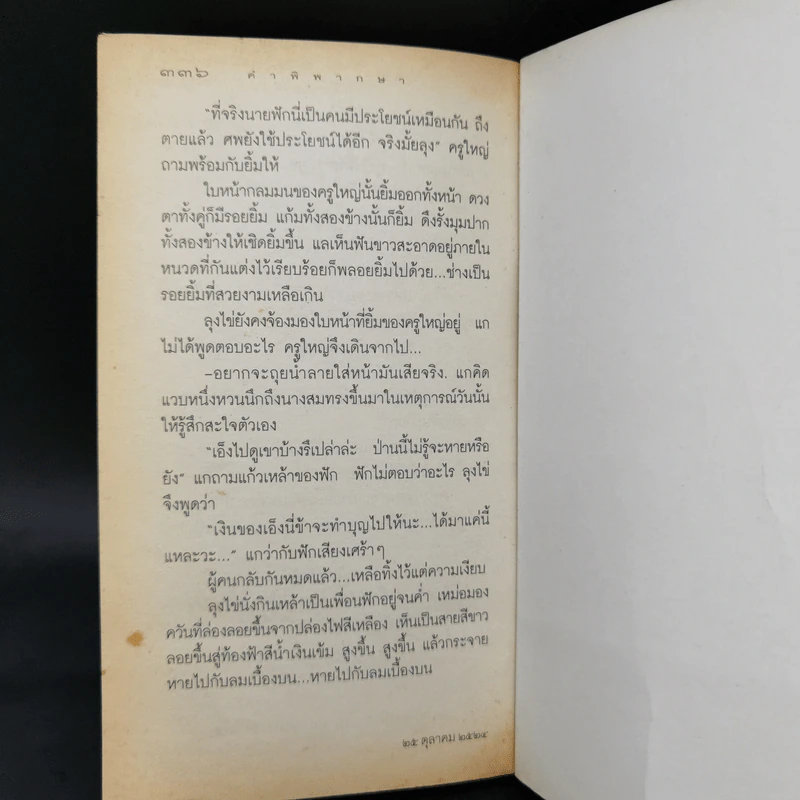 ๓๓๖ คำพิพากษา
“ที่จริงนายฟักนี่เป็นคนมีประโยชน์เหมือนกัน ถึง
ตายแล้ว ศพยังใช้ประโยชน์ได้อีก จริงมั้ยลุง” ครูใหญ่
ถามพร้อมกับยิ้มให้
ใบหน้ากลมมนของครูใหญ่นั้นยิ้มออกทั้งหน้า ดวง
ตาทั้งคู่ก็มีรอยยิ้ม แก้มทั้งสองข้างนั้นก็ยิ้ม ดึงรั้งมุมปาก
ทั้งสองข้างให้เชิดยิ้มขึ้น แลเห็นฟันขาวสะอาดอยู่ภายใน
หนวดที่กันแต่งไว้เรียบร้อยก็พลอยยิ้มไปด้วย...ช่างเป็น
รอยยิ้มที่สวยงามเหลือเกิน
ลุงไข่ยังคงจ้องมองใบหน้าที่ยิ้มของครูใหญ่อยู่ แก
ไม่ได้พูดตอบอะไร ครูใหญ่จึงเดินจากไป...
–อยากจะถุยน้ำลายใส่หน้ามันเสียจริง. แกคิด
แวบหนึ่งหวนนึกถึงนางสมทรงขึ้นมาในเหตุการณ์วันนั้น
ให้รู้สึกสะใจตัวเอง
“เอ็งไปดูเขาบ้างรึเปล่าล่ะ ป่านนี้ไม่รู้จะหายหรือ
ยัง” แกถามแก้วเหล้าของฟัก ฟักไม่ตอบว่าอะไร ลุงไข่
จึงพูดว่า
“เงินของเอ็งนี่ข้าจะทำบุญไปให้นะ...ได้มาแค่นี้
แหละวะ...” แกว่ากับฟักเสียงเศร้าๆ
ผู้คนกลับกันหมดแล้ว...เหลือทิ้งไว้แต่ความเงียบ
ลุงไข่นั่งกินเหล้าเป็นเพื่อนฟักอยู่จนค่ำ เหม่อมอง
ควันที่ล่องลอยขึ้นจากปล่องไฟสีเหลือง เห็นเป็นสายสีขาว
ลอยขึ้นสู่ท้องฟ้าสีน้ำเงินเข้ม สูงขึ้น สูงขึ้น แล้วกระจาย
หายไปกับลมเบื้องบน...หายไปกับลมเบื้องบน
๒๕ ตุลาคม ๒๕๒๔